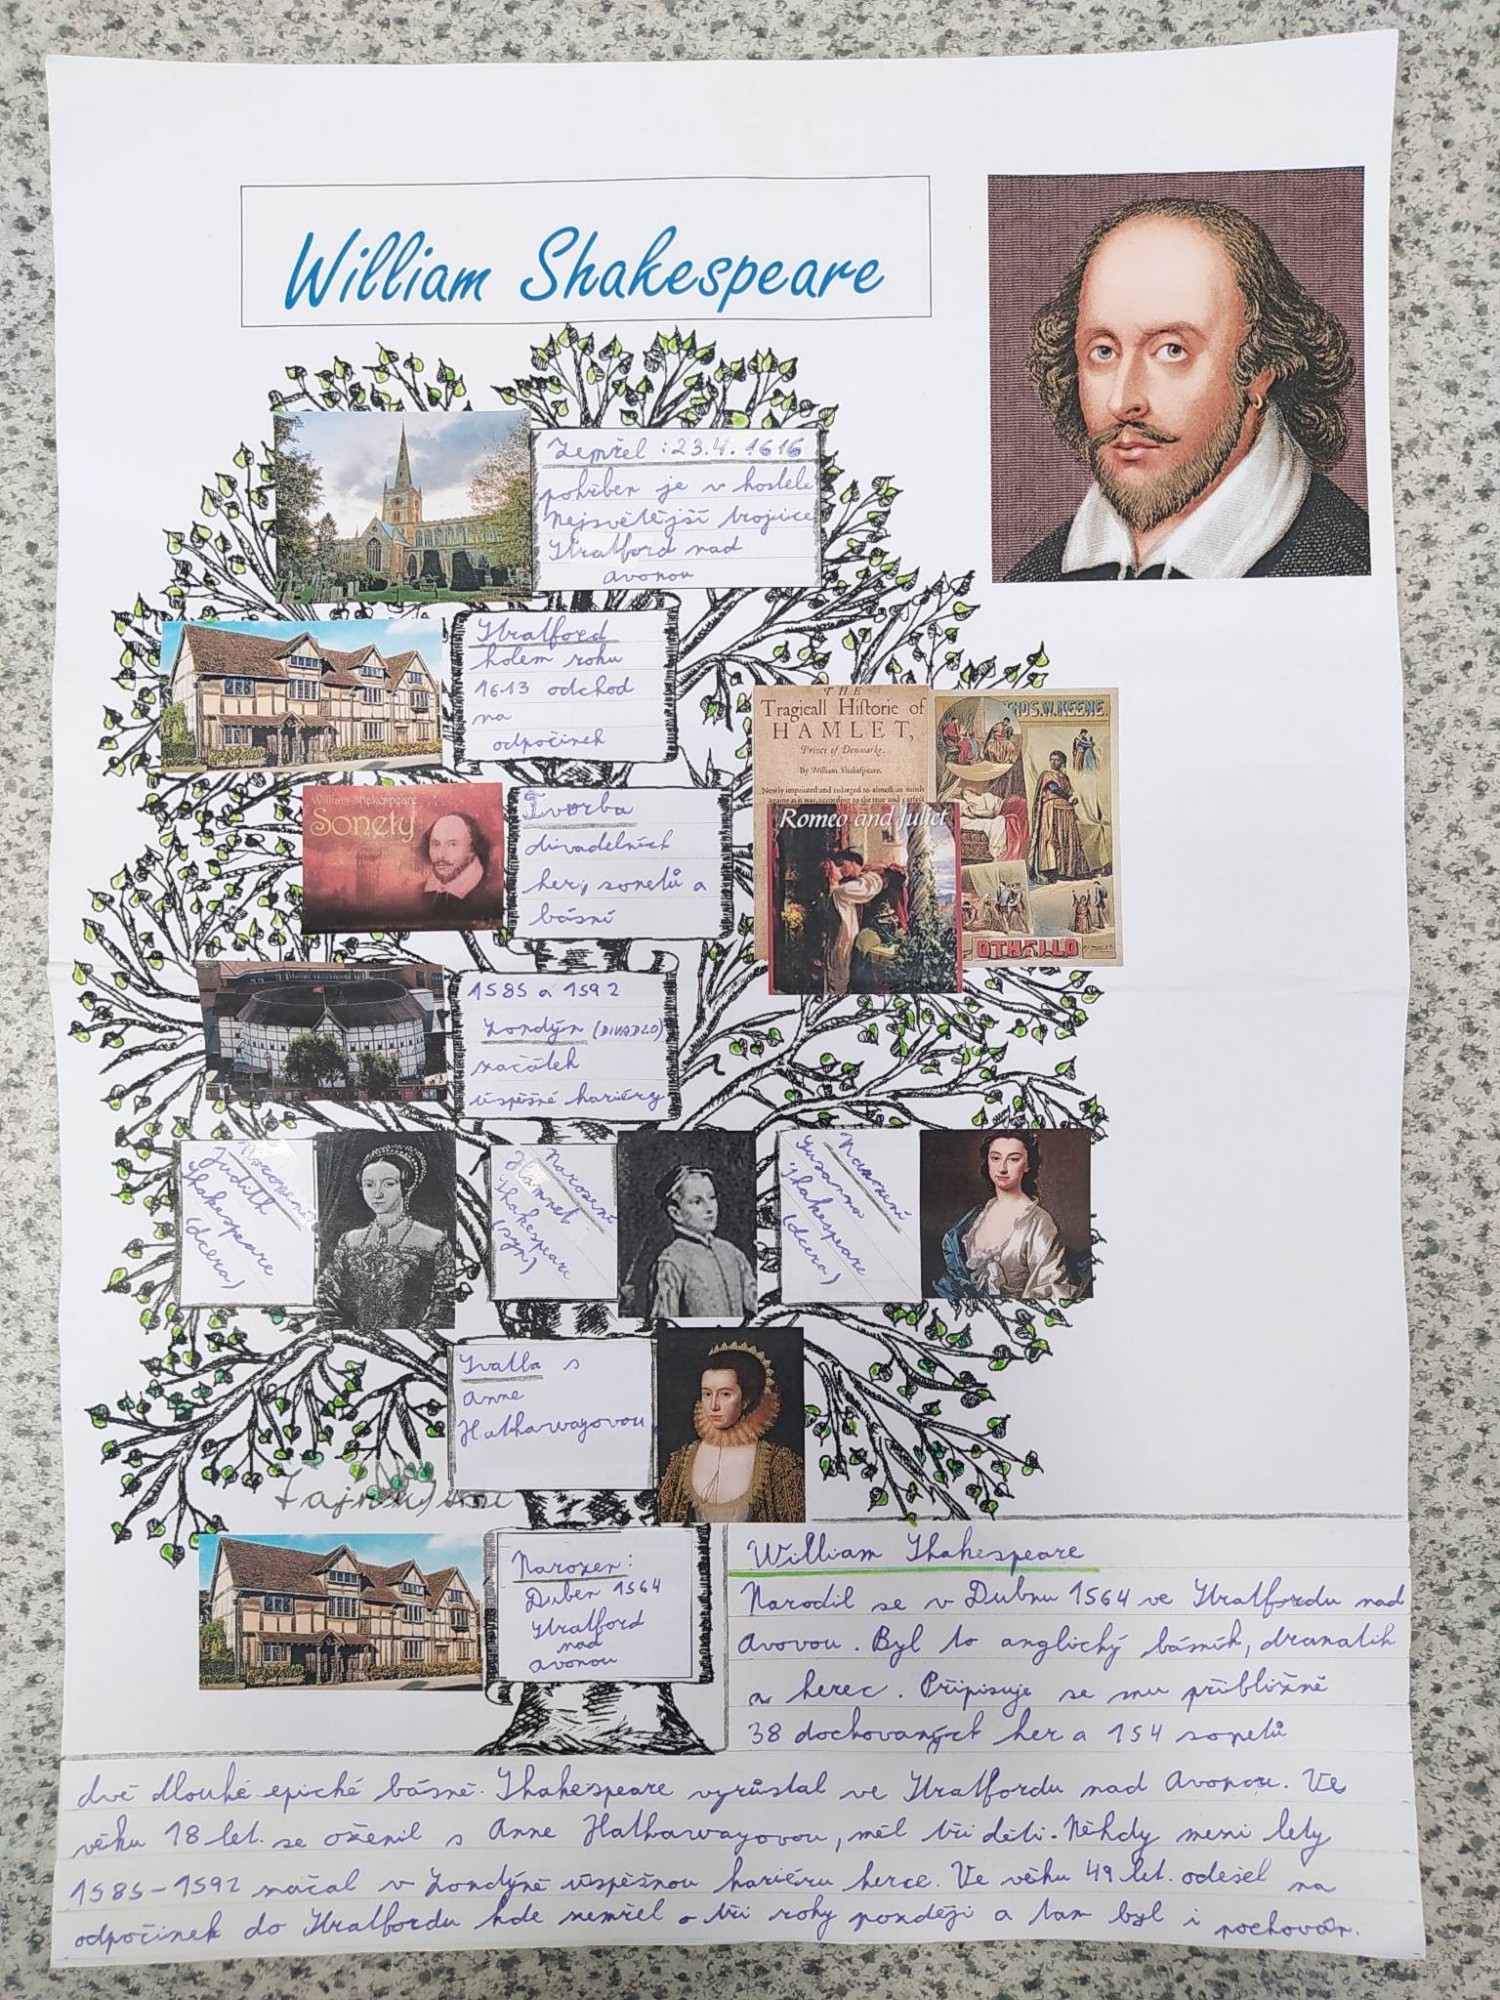 William Shakespeare
Zemřel : 23.4. 1616
pohřben je v kostele
Nejsvětější trojice
Stratford nad
avonou
Stratford
kolem roku
1613 odchod
na
odpočinek
THE
Tragicall Historie of
HAMLET,
Prince of Denmarke.
By William Shakespeare.
Newly imprinted and enlarged to almost as much
againe as it was, according to the true and perfect
THOS. W. KEENE.
Romeo and Juliet
OTHELLO
William Shakespeare
Sonety
Tvorba
divadelních
her, sonetů a
básní
1585 a 1592
Londýn (DIVADLO)
začátek
úspěšné kariéry
Narození
Judith
Shakespeare
(dcera)
Narození
Hamnet
Shakespeare
(syn)
Narození
Susanna
Shakespeare
(dcera)
Svatba s
Anne
Hathawayovou
Narozen:
Duben 1564
Stratford
nad
avonou
William Shakespeare
Narodil se v Dubnu 1564 ve Stratfordu nad
Avovou. Byl to anglický básník, dramatik
a herec. Připisuje se mu přibližně
38 dochovaných her a 154 sonetů
dvě dlouhé epické básně. Shakespeare vyrůstal ve Stratfordu nad Avonou. Ve
věku 18 let. se oženil s Anne Hathawayovou, měl tři děti. Někdy mezi lety
1585-1592 začal v Londýně úspěšnou kariéru herce. Ve věku 49 let. odešel na
odpočinek do Stratfordu kde zemřel o tři roky později a tam byl i pochován.